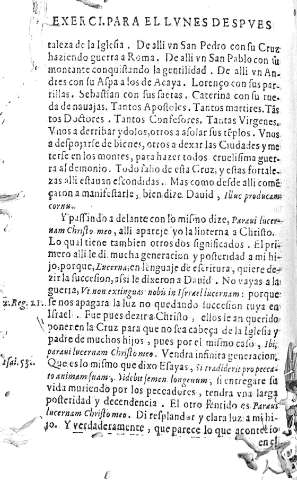 EXERCI. PARA EL LVNES DESPVES
taleza de la Iglesia. De alli vn San Pedro con su Cruz
haziendo guerra a Roma. De alli vn San Pablo con su
montante conquistando la gentilidad. De alli vn An
dres con su Aspa a los de Acaya. Lorenço con sus par
rillas. Sebastian con sus saetas. Caterina con su rue
da de nauajas. Tantos Apostoles. Tantos martires. Tã
tos Doctores. Tantos Confesores. Tantas Virgenes.
Vnos a derribar ydolos, otros a asolar sus tẽplos. Vnos
a despojarse de bienes, otros a dexar las Ciudades y me
terse en los montes, para hazer todos cruelisima guerra
al demonio. Todo salio de esta Cruz, y estas fortale-
zas alli estauan escondidas. Mas como desde alli comẽ
çaron a manifestarse, bien dize Dauid, Illuc producam
cornu.
Y passando adelante con lo mismo dize, Paraui lucer-
nam Christo meo, alli aparejè yo la linterna a Christo.
Lo qual tiene tambien otros dos significados. El pri-
mero alli le di mucha generacion y posteridad a mi hi-
jo, porque, Lucerna, en lenguaje de escritura, quiere de-
zir la succesion, asi le dixeron a Dauid. No vayas a la
guerra, Vt non extinguas nobis in Israel lucernam: porque
2. Reg. 21. se nos apagara la luz no quedando succesion tuya en
Israel. Fue pues dezir a Christo, ellos le an querido
poner en la Cruz para que no sea cabeça de la Iglesia y
padre de muchos hijos, pues por el mismo caso, Ibi,
Isai. 53. paraui lucernam Christo meo. Vendra infinita generacion.
Que es lo mismo que dixo Esayas, si tradiderit pro pecca-
to animam suam, Videbit semen longeuum, si entregare su
vida muriendo por los peccadores, tendra vna larga
posteridad y decendencia. El otro sentido es Paraui
lucernam Christo meo. Di resplandor y clara luz a mi hi-
jo. Y verdaderamente, que parece lo que acontecio
en el